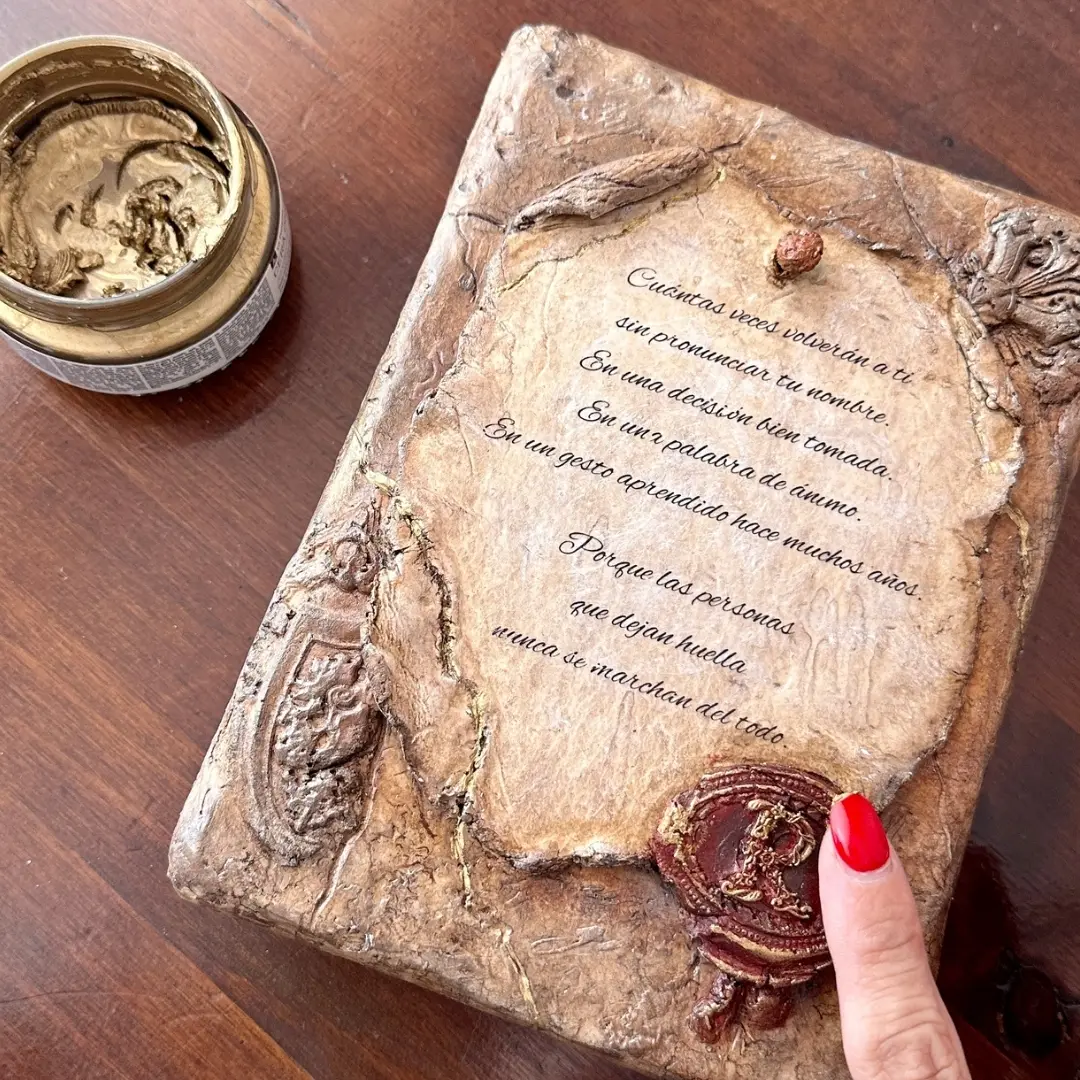 Cuántas veces volverán a ti
sin pronunciar tu nombre.
En una decisión bien tomada.
En una palabra de ánimo.
En un gesto aprendido hace muchos años.
Porque las personas
que dejan huella
nunca se marchan del todo.